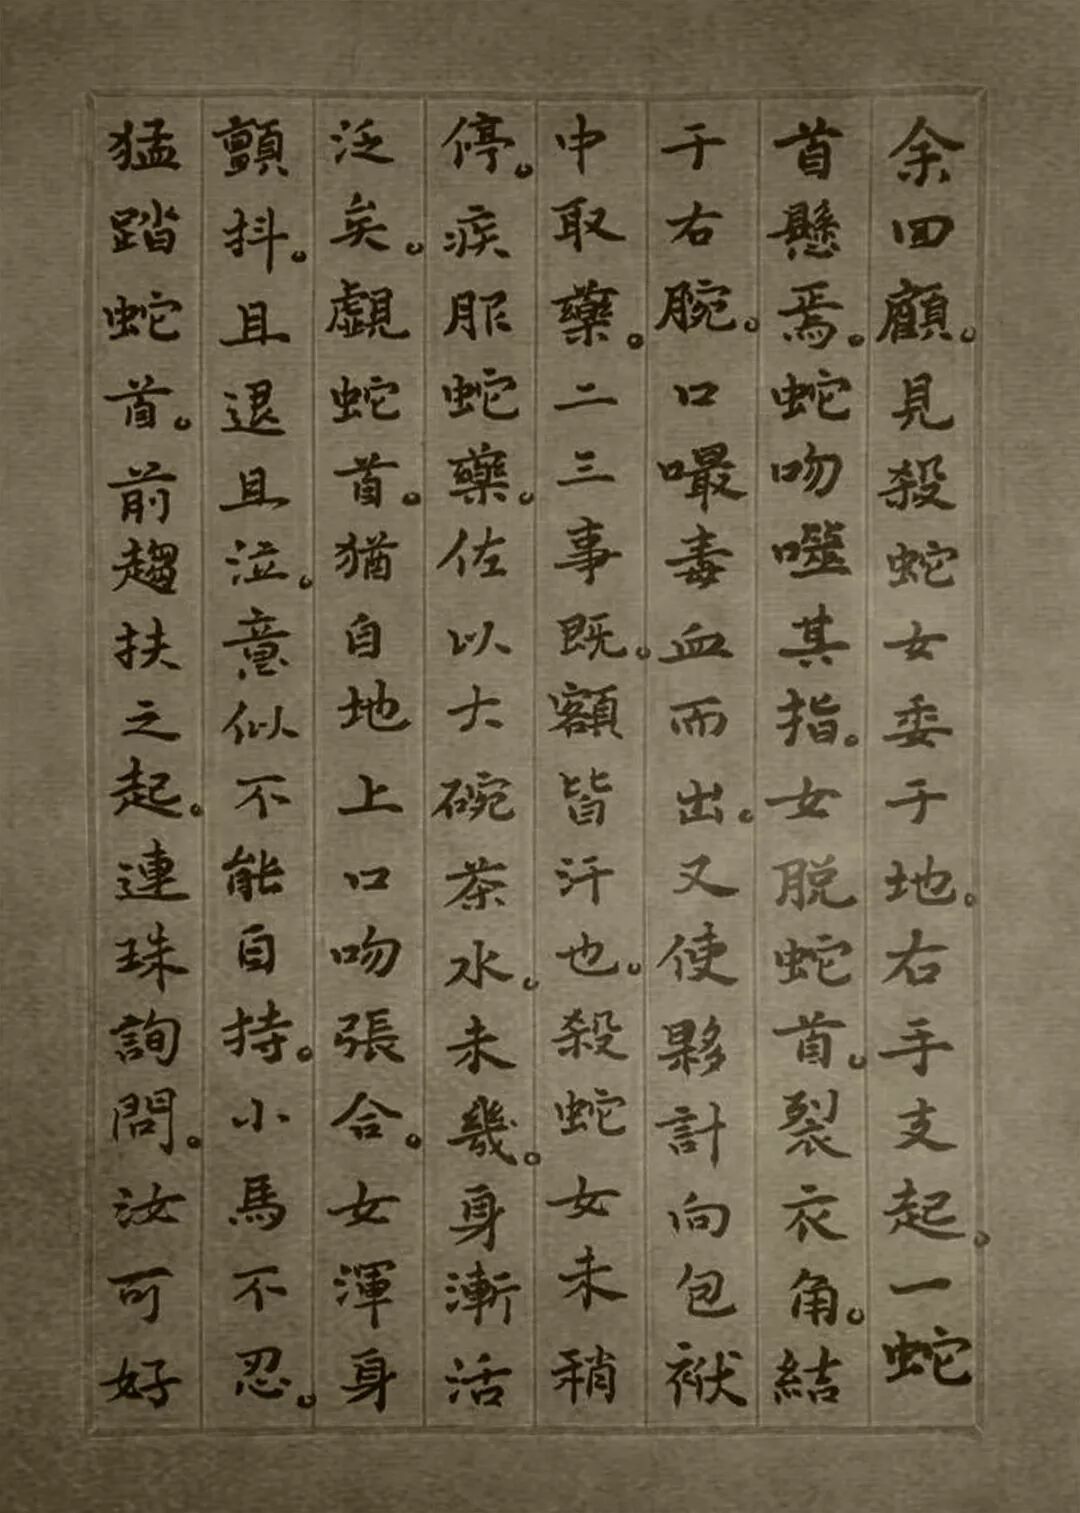 余四顧。見殺蛇女委于地。右手支起。一蛇
首懸焉。蛇吻噬其指。女脱蛇首。裂衣角。結
于右腕。口嘬毒血而出。又使夥計向包袱
中取藥。二三事既。額皆汗也。殺蛇女未稍
停。疾服蛇藥。佐以大碗茶水。未幾。身漸活
泛矣。覷蛇首。猶自地上口吻張合。女渾身
顫抖。且退且泣。意似不能自持。小馬不忍。
猛踏蛇首。前趨扶之起。連珠詢問。汝可好